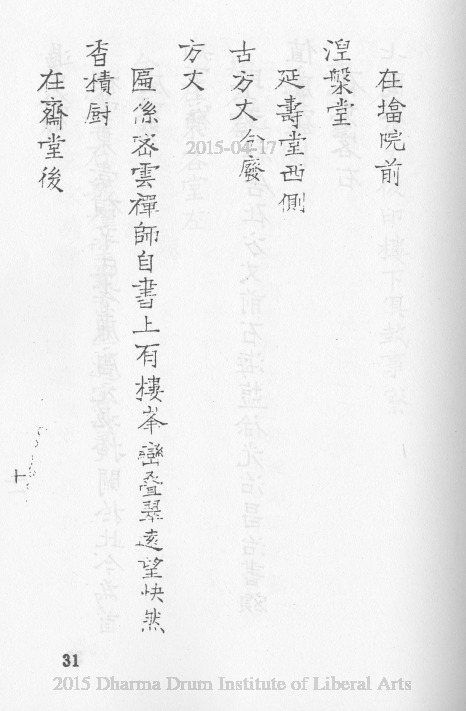 在墖院前
涅槃堂
延壽堂西側
古方丈今廢
方丈
匾係宻雲禪師自書上有樓峯巒叠翠遠望快然
香積厨
在齋堂後
十
31
2015-04-17
2015 Dharma Drum Institute of Liberal Arts